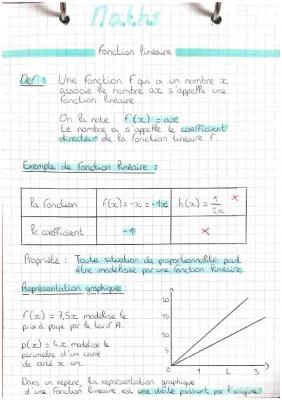 Maths
Fonction linéaire
Def : Une fonction f qui a un nombre x
associe le nombre ax s'appelle une
fonction linéaire
On la note f(x) = ax
Le nombre a s'appelle le coefficient
directeur de la fonction linéaire f.
Exemple de fonction linéaire :
la fonction f(x) = -x = -1x h(x) = 1/2x ×
le coefficient -1 ×
Propriété : Toute situation de proportionnalité peut
être modélisée par une fonction linéaire
Représentation graphique :
f(x) = 7,5x modélise le
prix à payer par le tarif A.
p(x) = 4x modélise le
périmètre d'un carré
de coté x cm.
20
15
10
5
0 1 2 3
Dans un repère, la représentation graphique
d'une fonction linéaire est une droite passant par l'origine